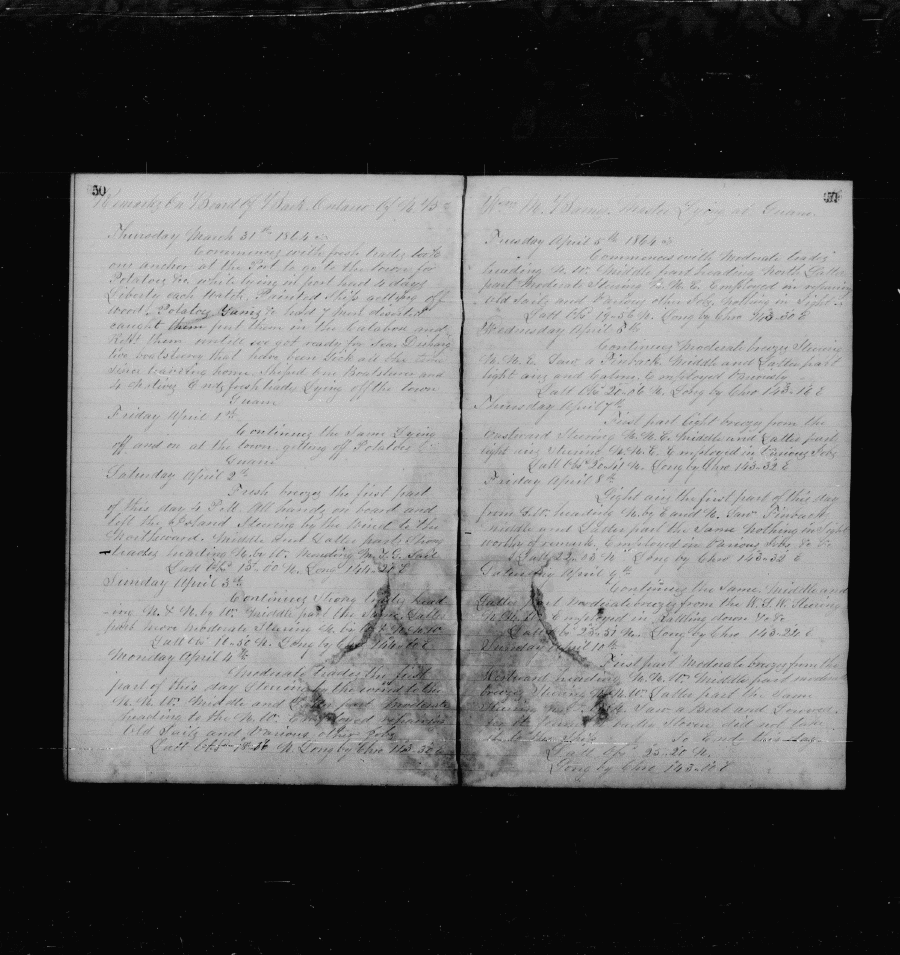 50
Remarks On Board Of Bark Ontario Of N B
Thursday March 31th 1864
Commences with fresh trades took
our anchor at the Port to go to the town for
Potatoes &c while being in port had 4 days
Liberty each Watch. Painted Ship getting off
Wood. Potatoes Yams &c had 7 men deserted
caught them put them in the Calaboo and
kept them until we got ready for Sea Discharg
two boatsteering that have been Sick all the time
Since leaveing home. Shiped one Boatsteerer and
4 Natives Ends fresh trades Lying off the town
Guam
Friday April 1th
Continues the Same Lying
off and on at the town getting off Potatoes &c
Guam
Saturday April 2th
Fresh breezes the first part
of this day 4 P.M. All hands on board and
left the Island Steering by the Wind to the
Northward. Middle and Latter parts Strong
trades heading N. by W. Mending M. T. G. Sail
Latt Obs 15-00 N. Long 144-21 E
Sunday April 3th
Continues Strong trades head
-ing N. & N. by W. Middle part the Same Latter
part more moderate Steering N. by
Latt Obs N. Long by Chro 144-00 E
Monday April 4th
Moderate trades the first
part of this day Steering by the wind to the
N. N. W. Middle and Latter part moderate
heading to the N. W. Employed repairing
Old Sails and Various other jobs
Latt Obs N Long by Chro
51
Wm M. Barnes Master Lying at Guam
Tuesday April 5th 1864
Commences with Moderate trades
heading N. W. Middle part heading North Latter
part Moderate Steering N. N. E. Employed in repairing
Old Sails and Various other Jobs. Nothing in Sight
Latt Obs 19-56 N. Long by Chro 143-30 E
Wednesday April 6th
Continues Moderate breezes Steering
N. N. E. Saw a Finback. Middle and Latter part
light airs and Calms. Employed Variously
Latt Obs 20-36 N. Long by Chro 143-16 E
Thursday April 7th
First part light breezes from the
Eastward Steering N. N. E. Middle and Latter part
light airs Steering N. N. E. Employed in Various Jobs
Latt Obs N. Long by Chro 143-32 E
Friday April 8th
Light airs the first part of this day
from heading N. by E and N. Saw Finback
middle and Latter part the Same Nothing in Sight
worthy of remark. Employed in Various Jobs &c &c
Latt 22-33 N Long by Chro 143-32 E
Saturday April 9th
Continues the Same. Middle and
Latter part moderate breezes from the W. S. W. Steering
Employed in Rattling down &c &c
Latt Obs 23-31 N. Long by Chro 143-22 E
Sunday April 10th
First part Moderate breezes from the
Westward heading N. N. W. Middle part moderate
breezes Steering N. N. W. Latter part the Same
Steering Saw a Boat and Lowered
did not take
So Ends this day
Latt Obs 25-20 N.
Long by Chro 143-10 E